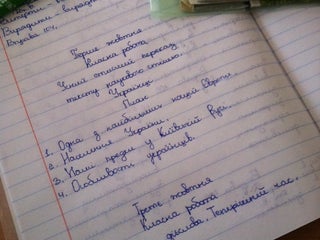 Вправа 104.
Перше жовтня
Класна робота
Усний стислий переказ
тексту наукового стилю.
Українці
План
1. Одна з найбільших націй Європи.
2. Населення України.
3. Наші предки у Київській Русі.
4. Особливості українців.
Третє жовтня
Класна робота
Теперішній час,